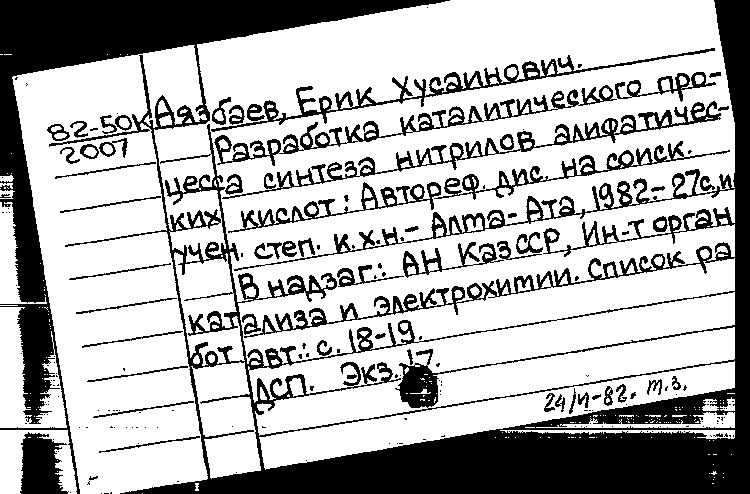 82-50К Аязбаев, Ерик Хусаинович.
2007 Разработка каталитического про-
цесса синтеза нитрилов алифатичес-
ких кислот: Автореф. дис. на соиск.
учен. степ. к.х.н.- Алма-Ата, 1982.- 27с,и
В надзаг.: АН КазССР, Ин-т орган
катализа и электрохитии. Список ра
бот авт.: с. 18-19.
ДСП. Экз. 17.
24/VI-82. т.з.